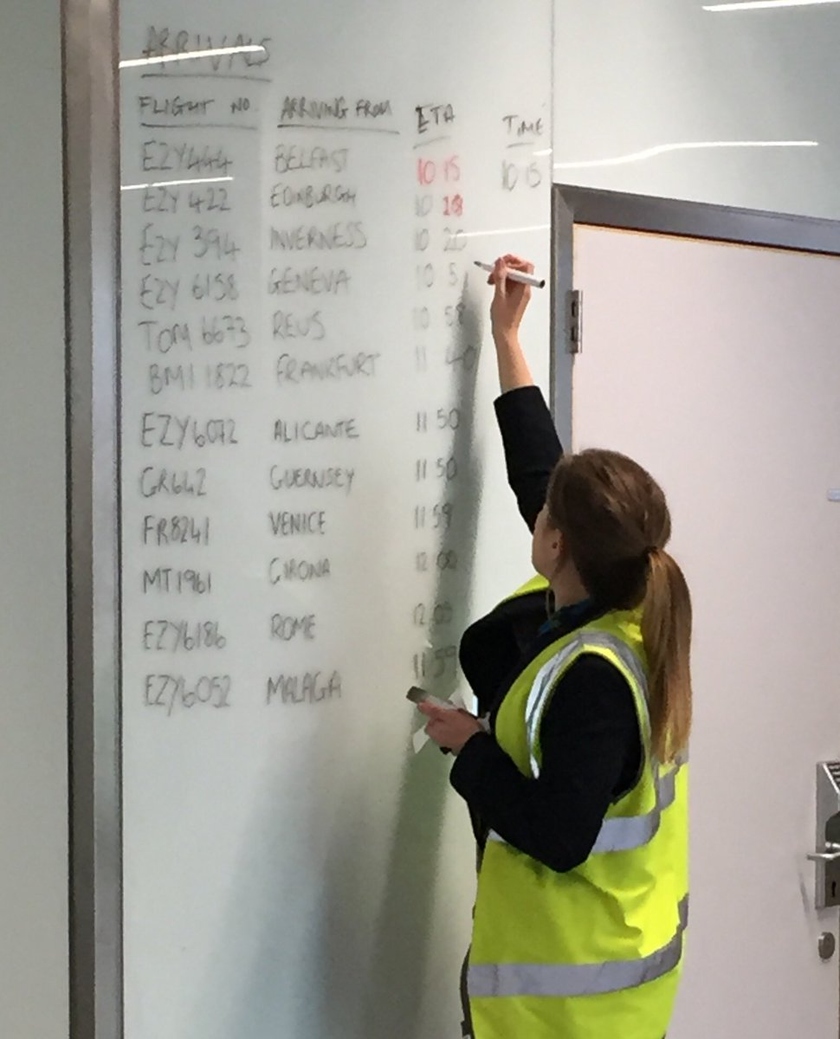 ARRIVALS
FLIGHT NO. ARRIVING FROM ETA TIME
EZY444 BELFAST 10 15 10 15
EZY 422 EDINBURGH 10 18
EZY 394 INVERNESS 10 20
EZY 6158 GENEVA 10 5
TOM 6673 REUS 10
BMI 1822 FRANKFURT 11 40
EZY6072 ALICANTE 11 50
GR642 GUERNSEY 11 50
FR8241 VENICE 11 59
MT1961 GIRONA 12 00
EZY6186 ROME 12 05
EZY6052 MALAGA 11 59